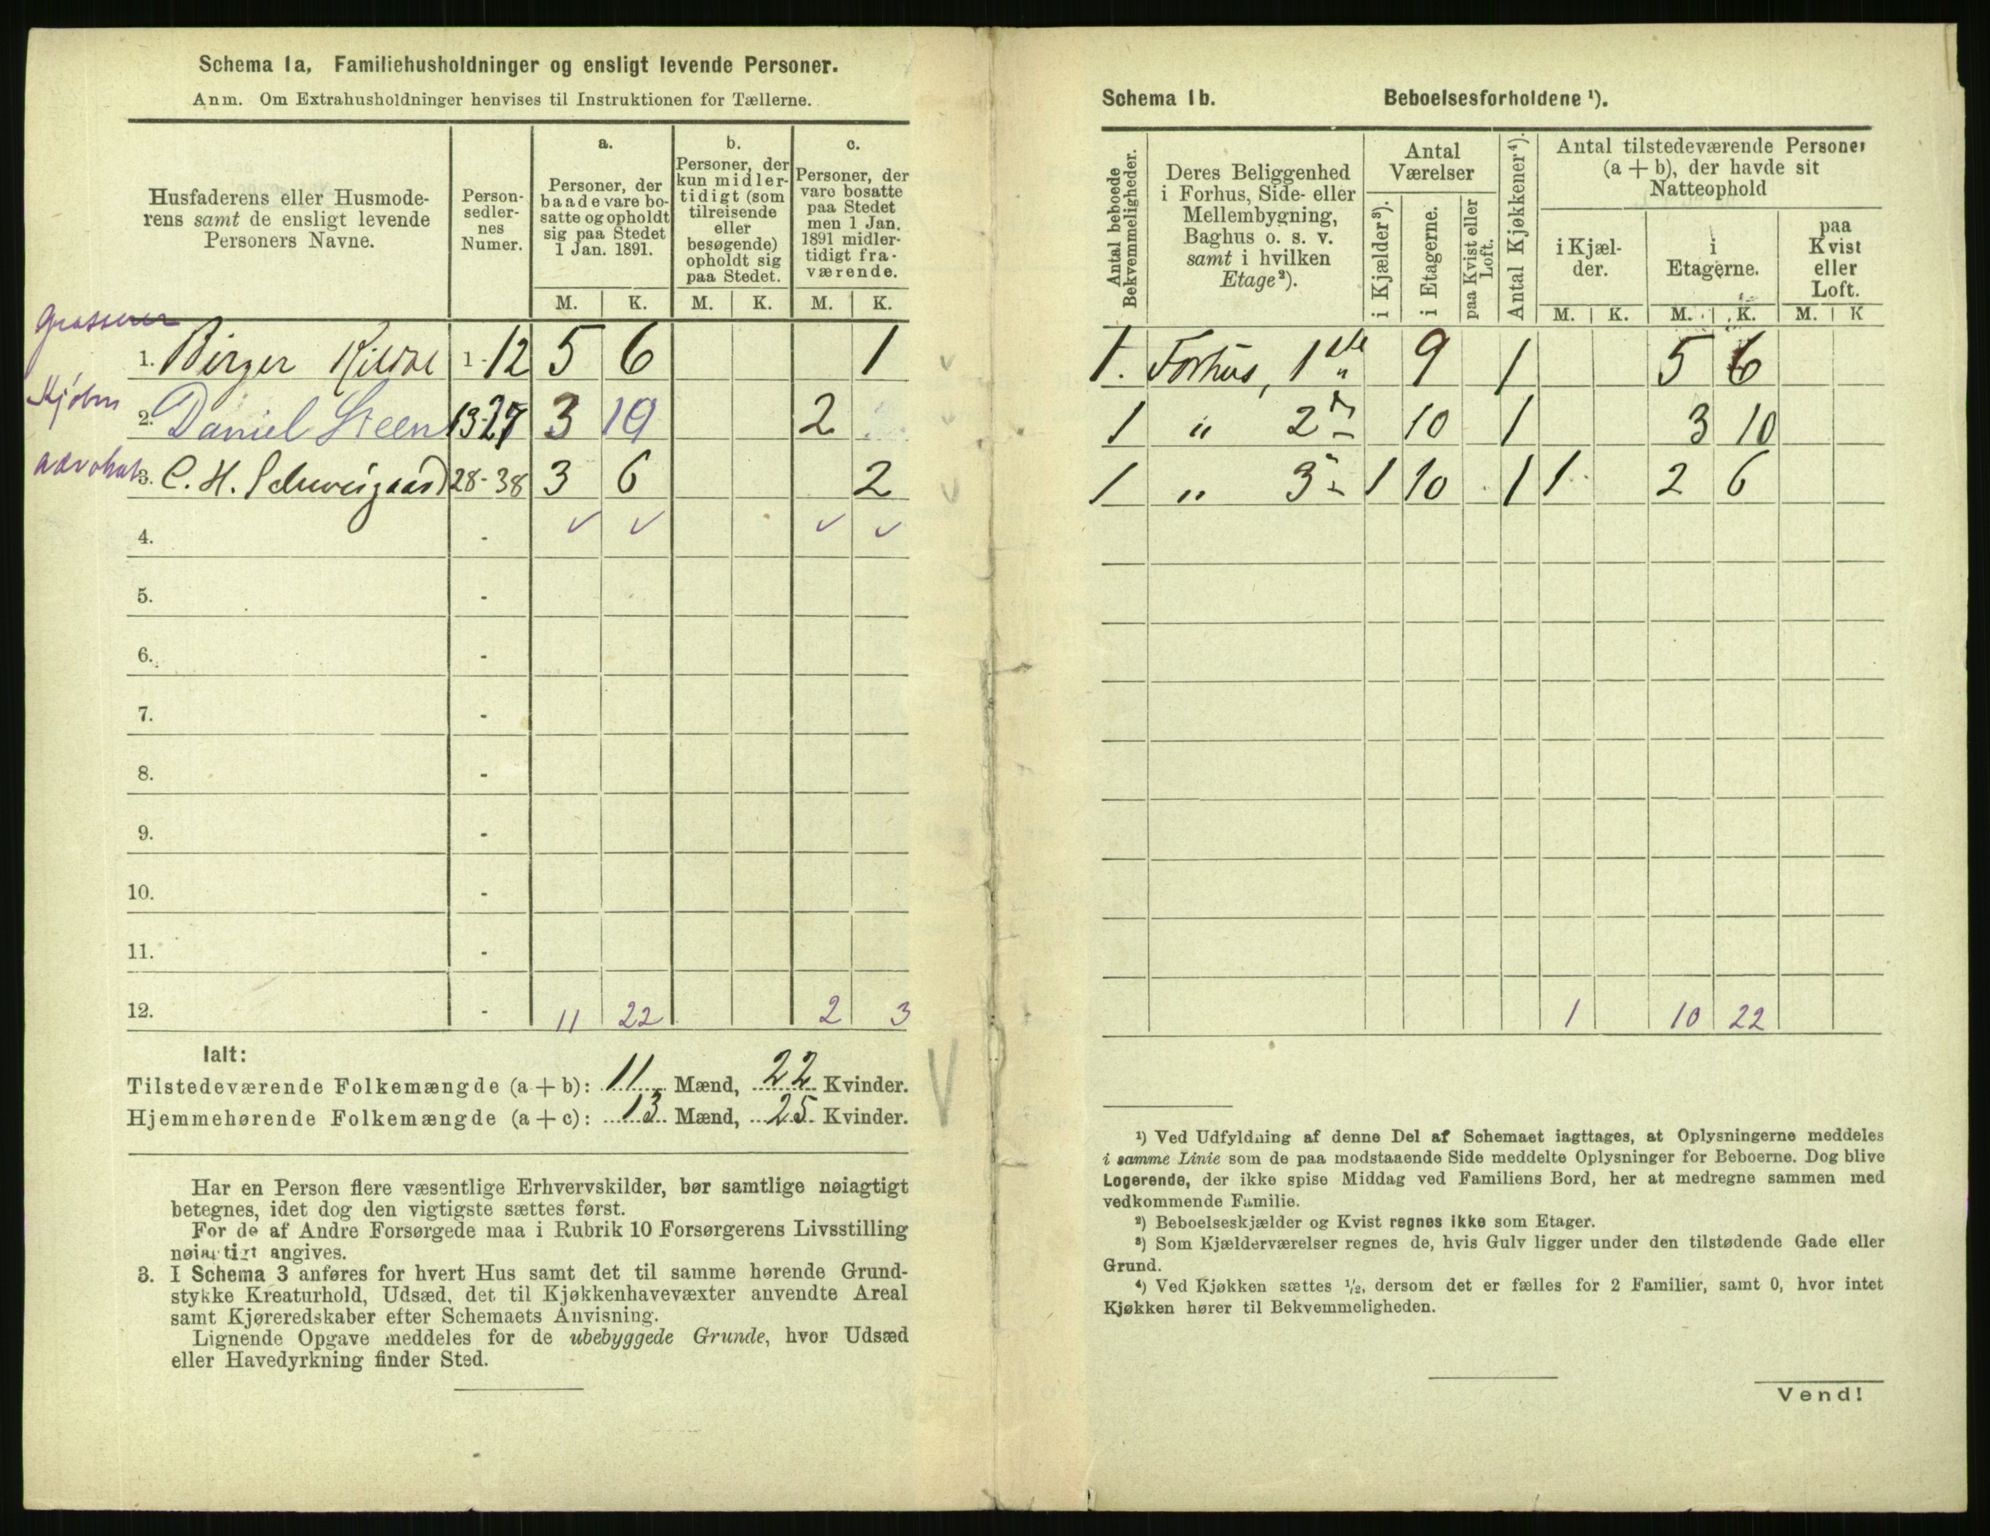 Schema 1a, Familiehusholdninger og ensligt levende Personer.
Anm. Om Extrahusholdninger henvises til Instruktionen for Tællerne.
Husfaderens eller Husmode-
rens samt de ensligt levende
Personers Navne.
Person-
sedler-
nes
Numer.
a.
Personer, der
baade vare bo-
satte og opholdt
sig paa Stedet
1 Jan. 1891.
b.
Personer, der
kun midler-
tidigt (som
tilreisende
eller
besøgende)
opholdt sig
paa Stedet.
c.
Personer, der
vare bosatte
paa Stedet
men 1 Jan.
1891 midler-
tidigt fra-
værende.
M. K. M. K. M. K.
Grosserer
1. Birger 1-12 5 6 1
Kjøbm
2. Daniel Steen 13-27 3 10 2
Advokat
3. C. H. Schweigaard 28-38 3 6 2
4. -
5. -
6. -
7. -
8. -
9. -
10. -
11. -
12. - 11 22 2 3
Ialt:
Tilstedeværende Folkemængde (a+b): 11 Mænd, 22 Kvinder.
Hjemmehørende Folkemængde (a+c): 13 Mænd, 25 Kvinder.
Har en Person flere væsentlige Erhvervskilder, bør samtlige nøiagtigt
betegnes, idet dog den vigtigste sættes først.
For de af Andre Forsørgede maa i Rubrik 10 Forsørgerens Livsstilling
nøiagtigt angives.
3. I Schema 3 anføres for hvert Hus samt det til samme hørende Grund-
stykke Kreaturhold, Udsæd, det til Kjøkkenhavevæxter anvendte Areal
samt Kjøreredskaber efter Schemaets Anvisning.
Lignende Opgave meddeles for de ubebyggede Grunde, hvor Udsæd
eller Havedyrkning finder Sted.
Schema 1b. Beboelsesforholdene ¹).
Antal beboede
Bekvemmeligheder.
Deres Beliggenhed
i Forhus, Side- eller
Mellembygning,
Baghus o. s. v.
samt i hvilken
Etage²).
Antal
Værelser
i Kjælder³).
i Etagerne.
paa Kvist eller
Loft.
Antal Kjøkkener⁴).
Antal tilstedeværende Personer
(a+b), der havde sit
Natteophold
i Kjæl-
der.
i
Etagerne.
paa
Kvist
eller
Loft.
M. K. M. K. M. K
1. Forhus, 1ste 9 1 5 6
1 " 2 10 1 3 10
1 " 3 1 10 1 1 2 6
1 10 22
¹) Ved Udfyldning af denne Del af Schemaet iagttages, at Oplysningerne meddeles
i samme Linie som de paa modstaaende Side meddelte Oplysninger for Beboerne. Dog blive
Logerende, der ikke spise Middag ved Familiens Bord, her at medregne sammen med
vedkommende Familie.
²) Beboelseskjælder og Kvist regnes ikke som Etager.
³) Som Kjælderværelser regnes de, hvis Gulv ligger under den tilstødende Gade eller
Grund.
⁴) Ved Kjøkken sættes ½, dersom det er fælles for 2 Familier, samt 0, hvor intet
Kjøkken hører til Bekvemmeligheden.
Vend!